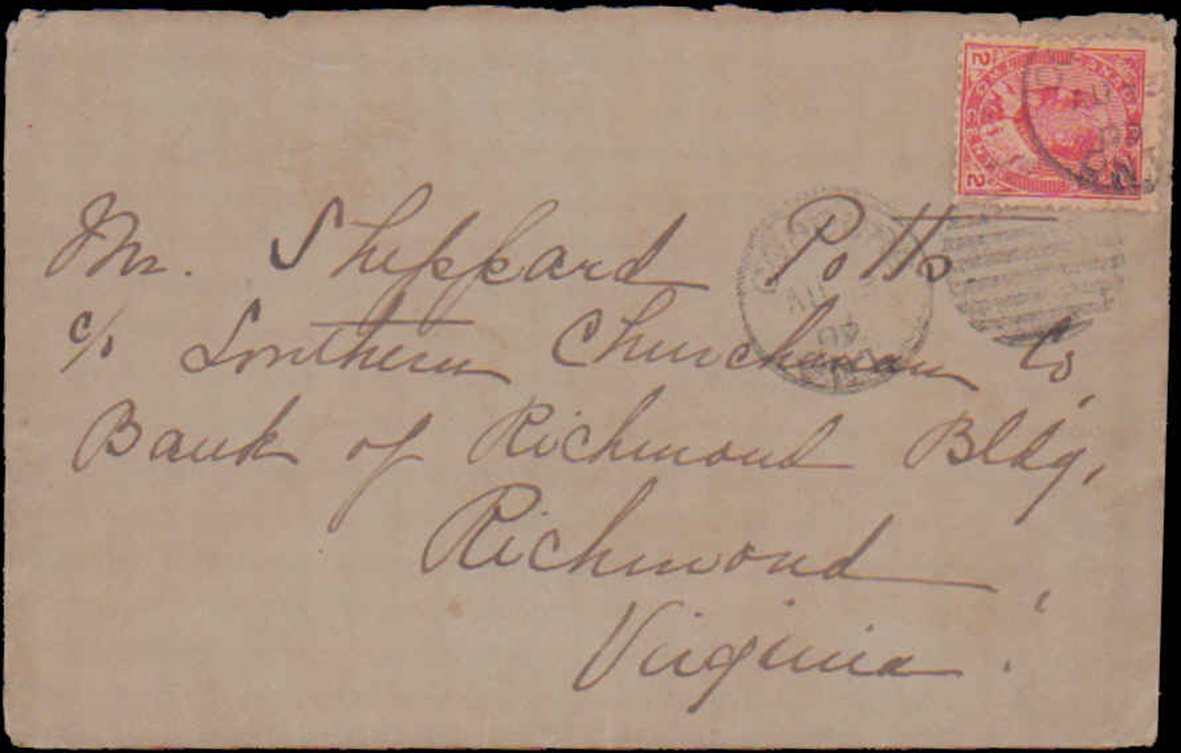 Mr. Sheppard Potts.
c/o Southern Churchman Co.,
Bank of Richmond Bldg,
Richmond,
Virginia.
2
2